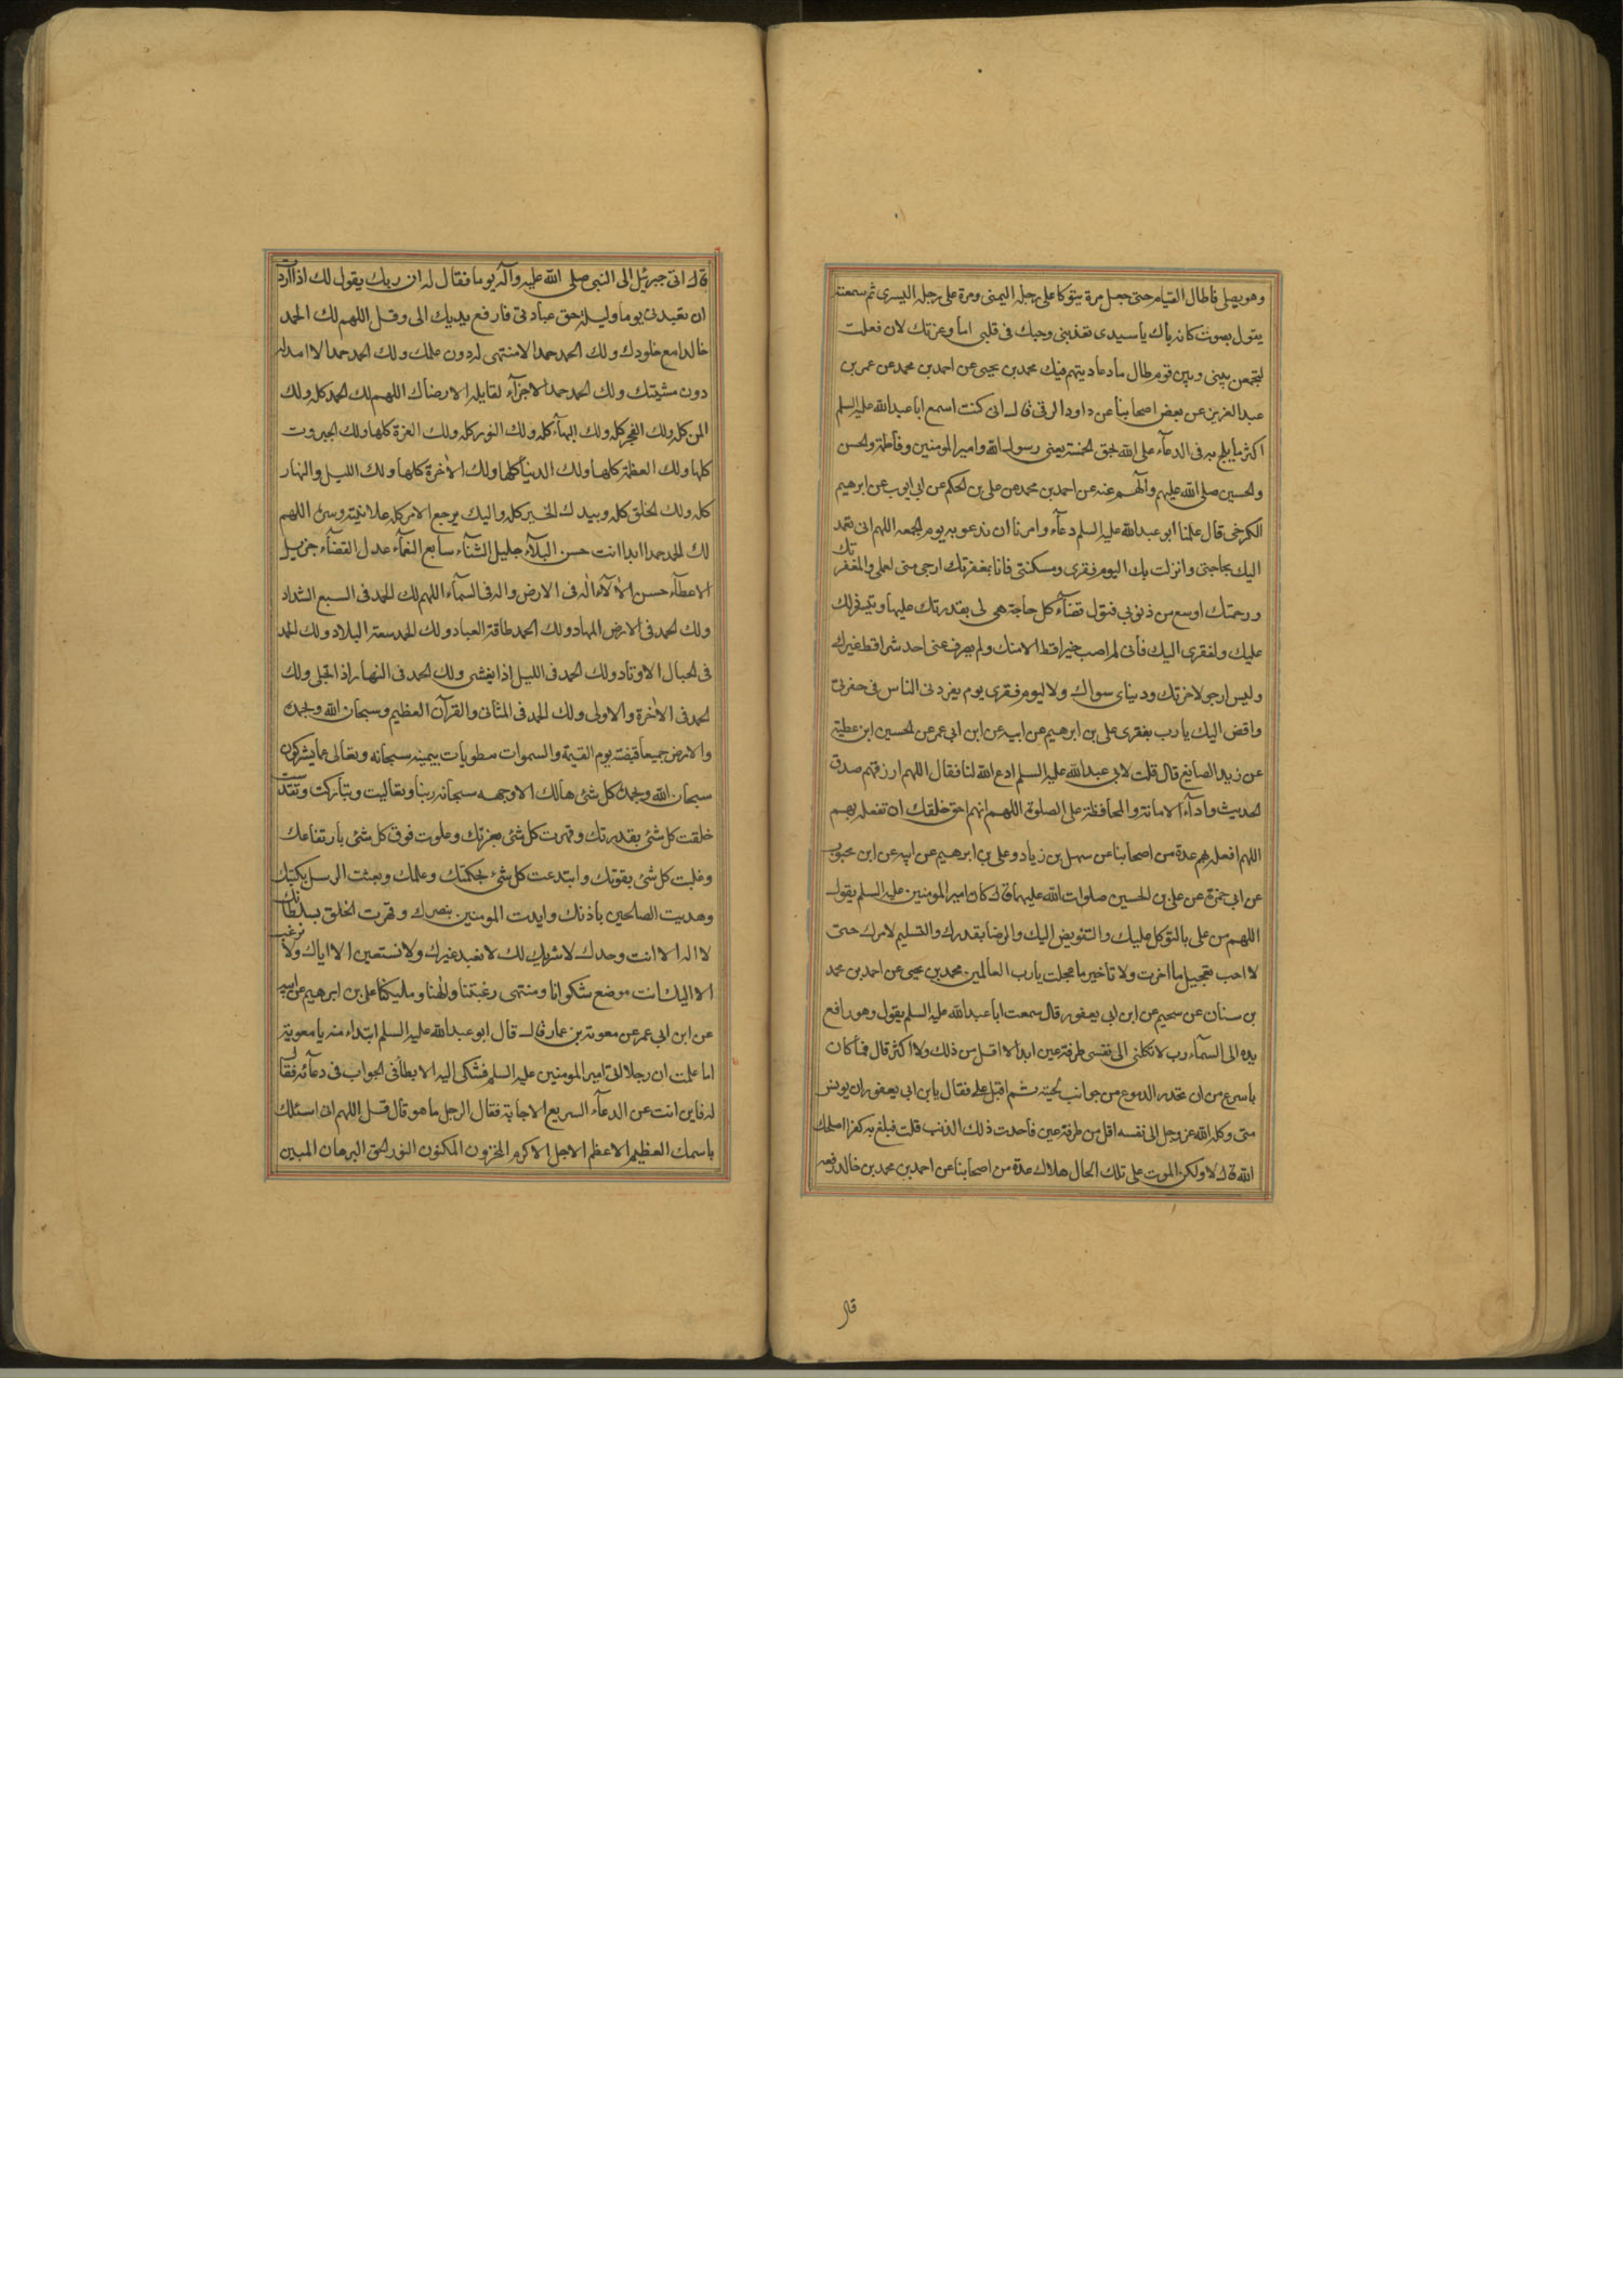 وهو يصلى فاطال القيام حتى جعل مرة يتوكا على رجله اليمنى ومرة على رجله اليسرى ثم سمعته
يقول بصوت كانه باك يا سيدى تعذبنى وحبك فى قلبى اما وعزتك لان فعلت
لتجمعن بينى وبين قوم طال ما عاديتهم فيك محمد بن يحيى عن احمد بن محمد عن عمر بن
عبد العزيز عن بعض اصحابنا عن داود الرقى قال انى كنت اسمع ابا عبد الله عليه السلم
اكثر ما يلح به فى الدعاء على الله بحق الخمسة يعنى رسول الله وامير المومنين وفاطمة والحسن
والحسين صلى الله عليهم وآلهم عنه عن احمد بن محمد عن على بن الحكم عن ابى ايوب عن ابرهيم
الكرخى قال علمنا ابو عبد الله عليه السلم دعاء وامرنا ان ندعو به يوم الجمعه اللهم انى تعمد
اليك بحاجتى وانزلت بك اليوم فقرى ومسكنتى فانا بمغفرتك ارجى منى لعملى ولمغفرتك
ورحمتك اوسع من ذنوبى فتول قضاء كل حاجة هى لى بقدرتك عليها وتيسر ذلك
عليك ولفقرى اليك فانى لم اصب خيرا قط الا منك ولم يصرف عنى احد شرا قط غيرك
وليس ارجو لاخرتك ودنياى سواك ولا ليوم فقرى يوم يفردنى الناس فى حفرتى
وافض اليك يا رب بفقرى على بن ابرهيم عن ابيه عن ابن ابى عمر عن الحسين ابن عطية
عن زيد الصايغ قال قلت لابى عبد الله عليه السلم ادع الله لنا فقال اللهم ارزقهم صدق
الحديث واداء الامانة والمحافظة على الصلوة اللهم انهم احق خلقك ان تفعله بهم
اللهم افعله بهم عدة من اصحابنا عن سهل بن زياد وعلى بن ابرهيم عن ابيه عن ابن محبوب
عن ابى حمزة عن على بن الحسين صلوات الله عليهما قال كان امير المومنين عليه السلم يقول
اللهم من على بالتوكل عليك والتفويض اليك والرضا بقدرك والتسليم لامرك حتى
لا احب تعجيل ما اخرت ولا تاخير ما عجلت يا رب العالمين محمد بن يحيى عن احمد بن محمد
بن سنان عن سحيم عن ابن ابى يعفور قال سمعت ابا عبد الله عليه السلم يقول وهو رافع
يده الى السماء رب لا تكلنى الى نفسى طرفة عين ابدا لا اقل من ذلك ولا اكثر قال فما كان
باسرع من ان تحدر الدموع من جوانب لحيته ثم اقبل على فقال يابن ابى يعفور ان يونس
متى وكله الله عز وجل الى نفسه اقل من طرفة عين فاحدث ذلك الذنب قلت فبلغ به كفرا اصلحك
الله قال لا ولكن الموت على تلك الحال هلاك عدة من اصحابنا عن احمد بن محمد بن خالد رفعه
قال
قال اتى جبرئيل الى النبى صلى الله عليه وآله يوما فقال له ان ربك يقول لك اذا اردت
ان تعبدنى يوما وليلة حق عبادتى فارفع يديك الى وقل اللهم لك الحمد
خالدا مع خلودك ولك الحمد حمدا لا منتهى له دون علمك ولك الحمد حمدا لا امد له
دون مشيتك ولك الحمد حمدا لا جزآء لقايله الا رضاك اللهم لك الحمد كله ولك
المن كله ولك الفخر كله ولك البهاء كله ولك النور كله ولك العزة كلها ولك الجبروت
كلها ولك العظمة كلها ولك الدنيا كلها ولك الاخرة كلها ولك الليل والنهار
كله ولك الخلق كله وبيدك الخير كله واليك يرجع الامر كله علانيته وسره اللهم
لك الحمد حمدا ابدا انت حسن البلآء جليل الثنآء سابغ النعمآء عدل القضآء جزيل
الاعطآء حسن الآلآء اله فى الارض واله فى السمآء اللهم لك الحمد فى السبع الشداد
ولك الحمد فى الارض المهاد ولك الحمد طاقة العباد ولك الحمد سعة البلاد ولك الحمد
فى الجبال الاوتاد ولك الحمد فى الليل اذا يغشى ولك الحمد فى النهار اذا تجلى ولك
الحمد فى الاخرة والاولى ولك الحمد فى المثانى والقرآن العظيم وسبحان الله وبحمده
والارض جميعا قبضته يوم القيمة والسموات مطويات بيمينه سبحانه وتعالى عما يشركون
سبحان الله وبحمده كل شئ هالك الا وجهه سبحانه ربنا وتعاليت وتباركت وتقدست
خلقت كل شئ بقدرتك وقهرت كل شئ بعزتك وعلوت فوق كل شئ بارتفاعك
وغلبت كل شئ بقوتك وابتدعت كل شئ بحكمتك وعلمك وبعثت الرسل بكتبك
وهديت الصالحين باذنك وايدت المومنين بنصرك وقهرت الخلق بسلطانك
لا اله الا انت وحدك لا شريك لك لا نعبد غيرك ولا نستعين الا اياك ولا نرغب
الا اليك انت موضع شكوانا ومنتهى رغبتنا والهنا ومليكنا على بن ابرهيم عن ابيه
عن ابن ابى عمر عن معوية بن عمار قال قال ابو عبد الله عليه السلم ابتداء منه يا معوية
اما علمت ان رجلا اتى امير المومنين عليه السلم فشكى اليه الابطآ فى الجواب فى دعآئه فقال
له فاين انت عن الدعآء السريع الاجابة فقال الرجل ما هو قال قل اللهم انى اسئلك
باسمك العظيم الاعظم الاجل الاكرم المخزون المكنون النور الحق البرهان المبين